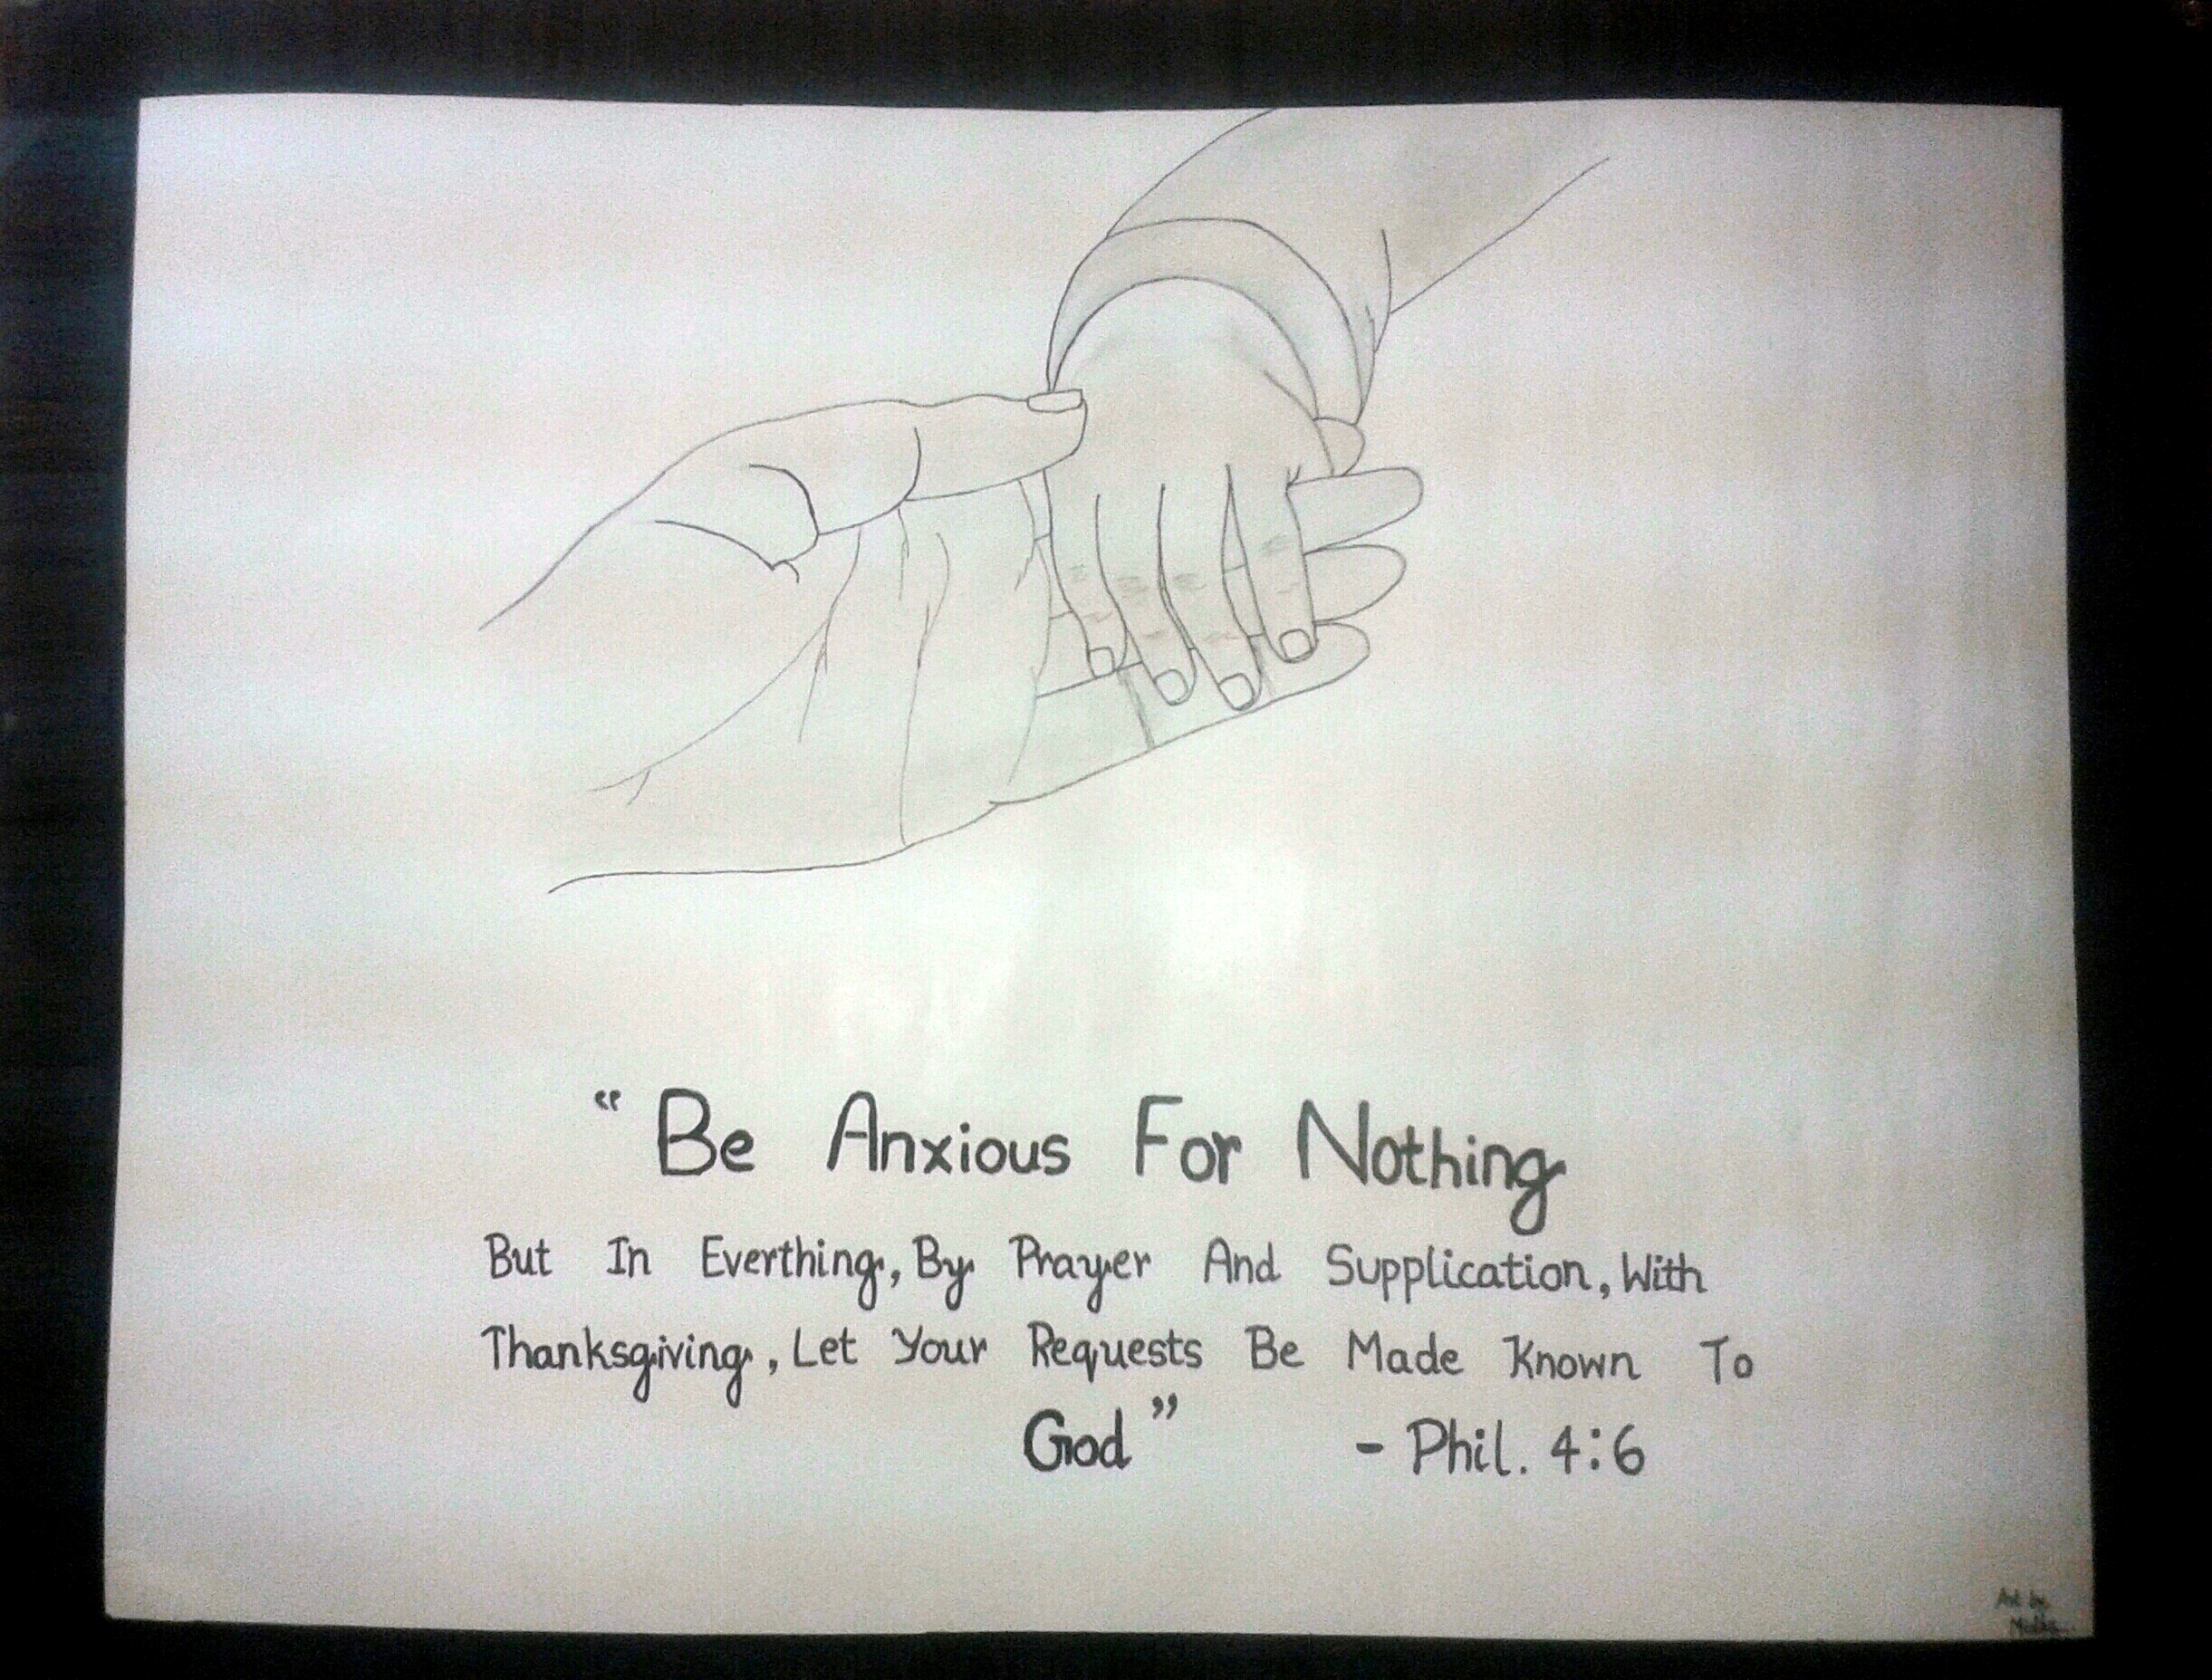 “ Be Anxious For Nothing
But In Everthing, By Prayer And Supplication, With
Thanksgiving, Let Your Requests Be Made Known To
God ” - Phil. 4:6
Art by